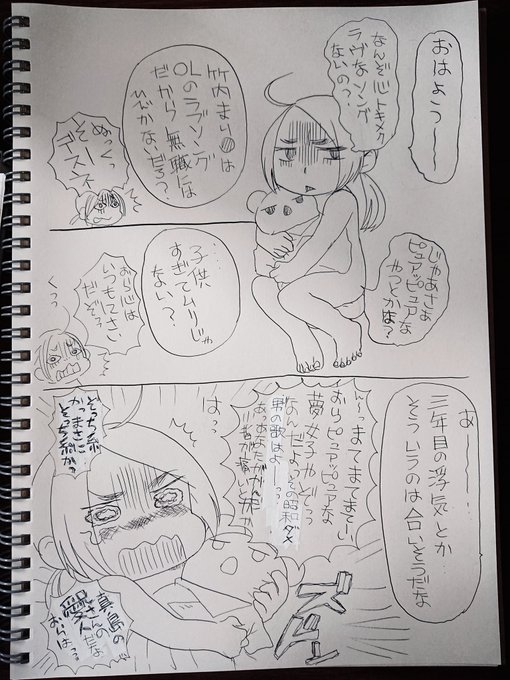 おはよう〜
なんぞ心トキメク
ラヴなソング
ないの?
竹内まい●は
OLのラブソング
だから無職には
ひびかないだろ?
ぬっくっ
そー
デスネ
じゃあさぁ
ピュアッピュアな
やつとかは?
子供…
すぎてムリじゃ
ない?
おら心は
いつもじさい
だぞっ
くっ
あー…
三年目の浮気とか…
そういうのは合いそうだな
ん〜っまてまてまてい
おらピュアッピュアな
夢女子やどっ
なんだよっその昭和ダメ
男の歌はよーっ?
はっっ
そっち系
かっまさに
そっち系かっ
ズムッ
真島の
さんの
愛人だな
おらは…